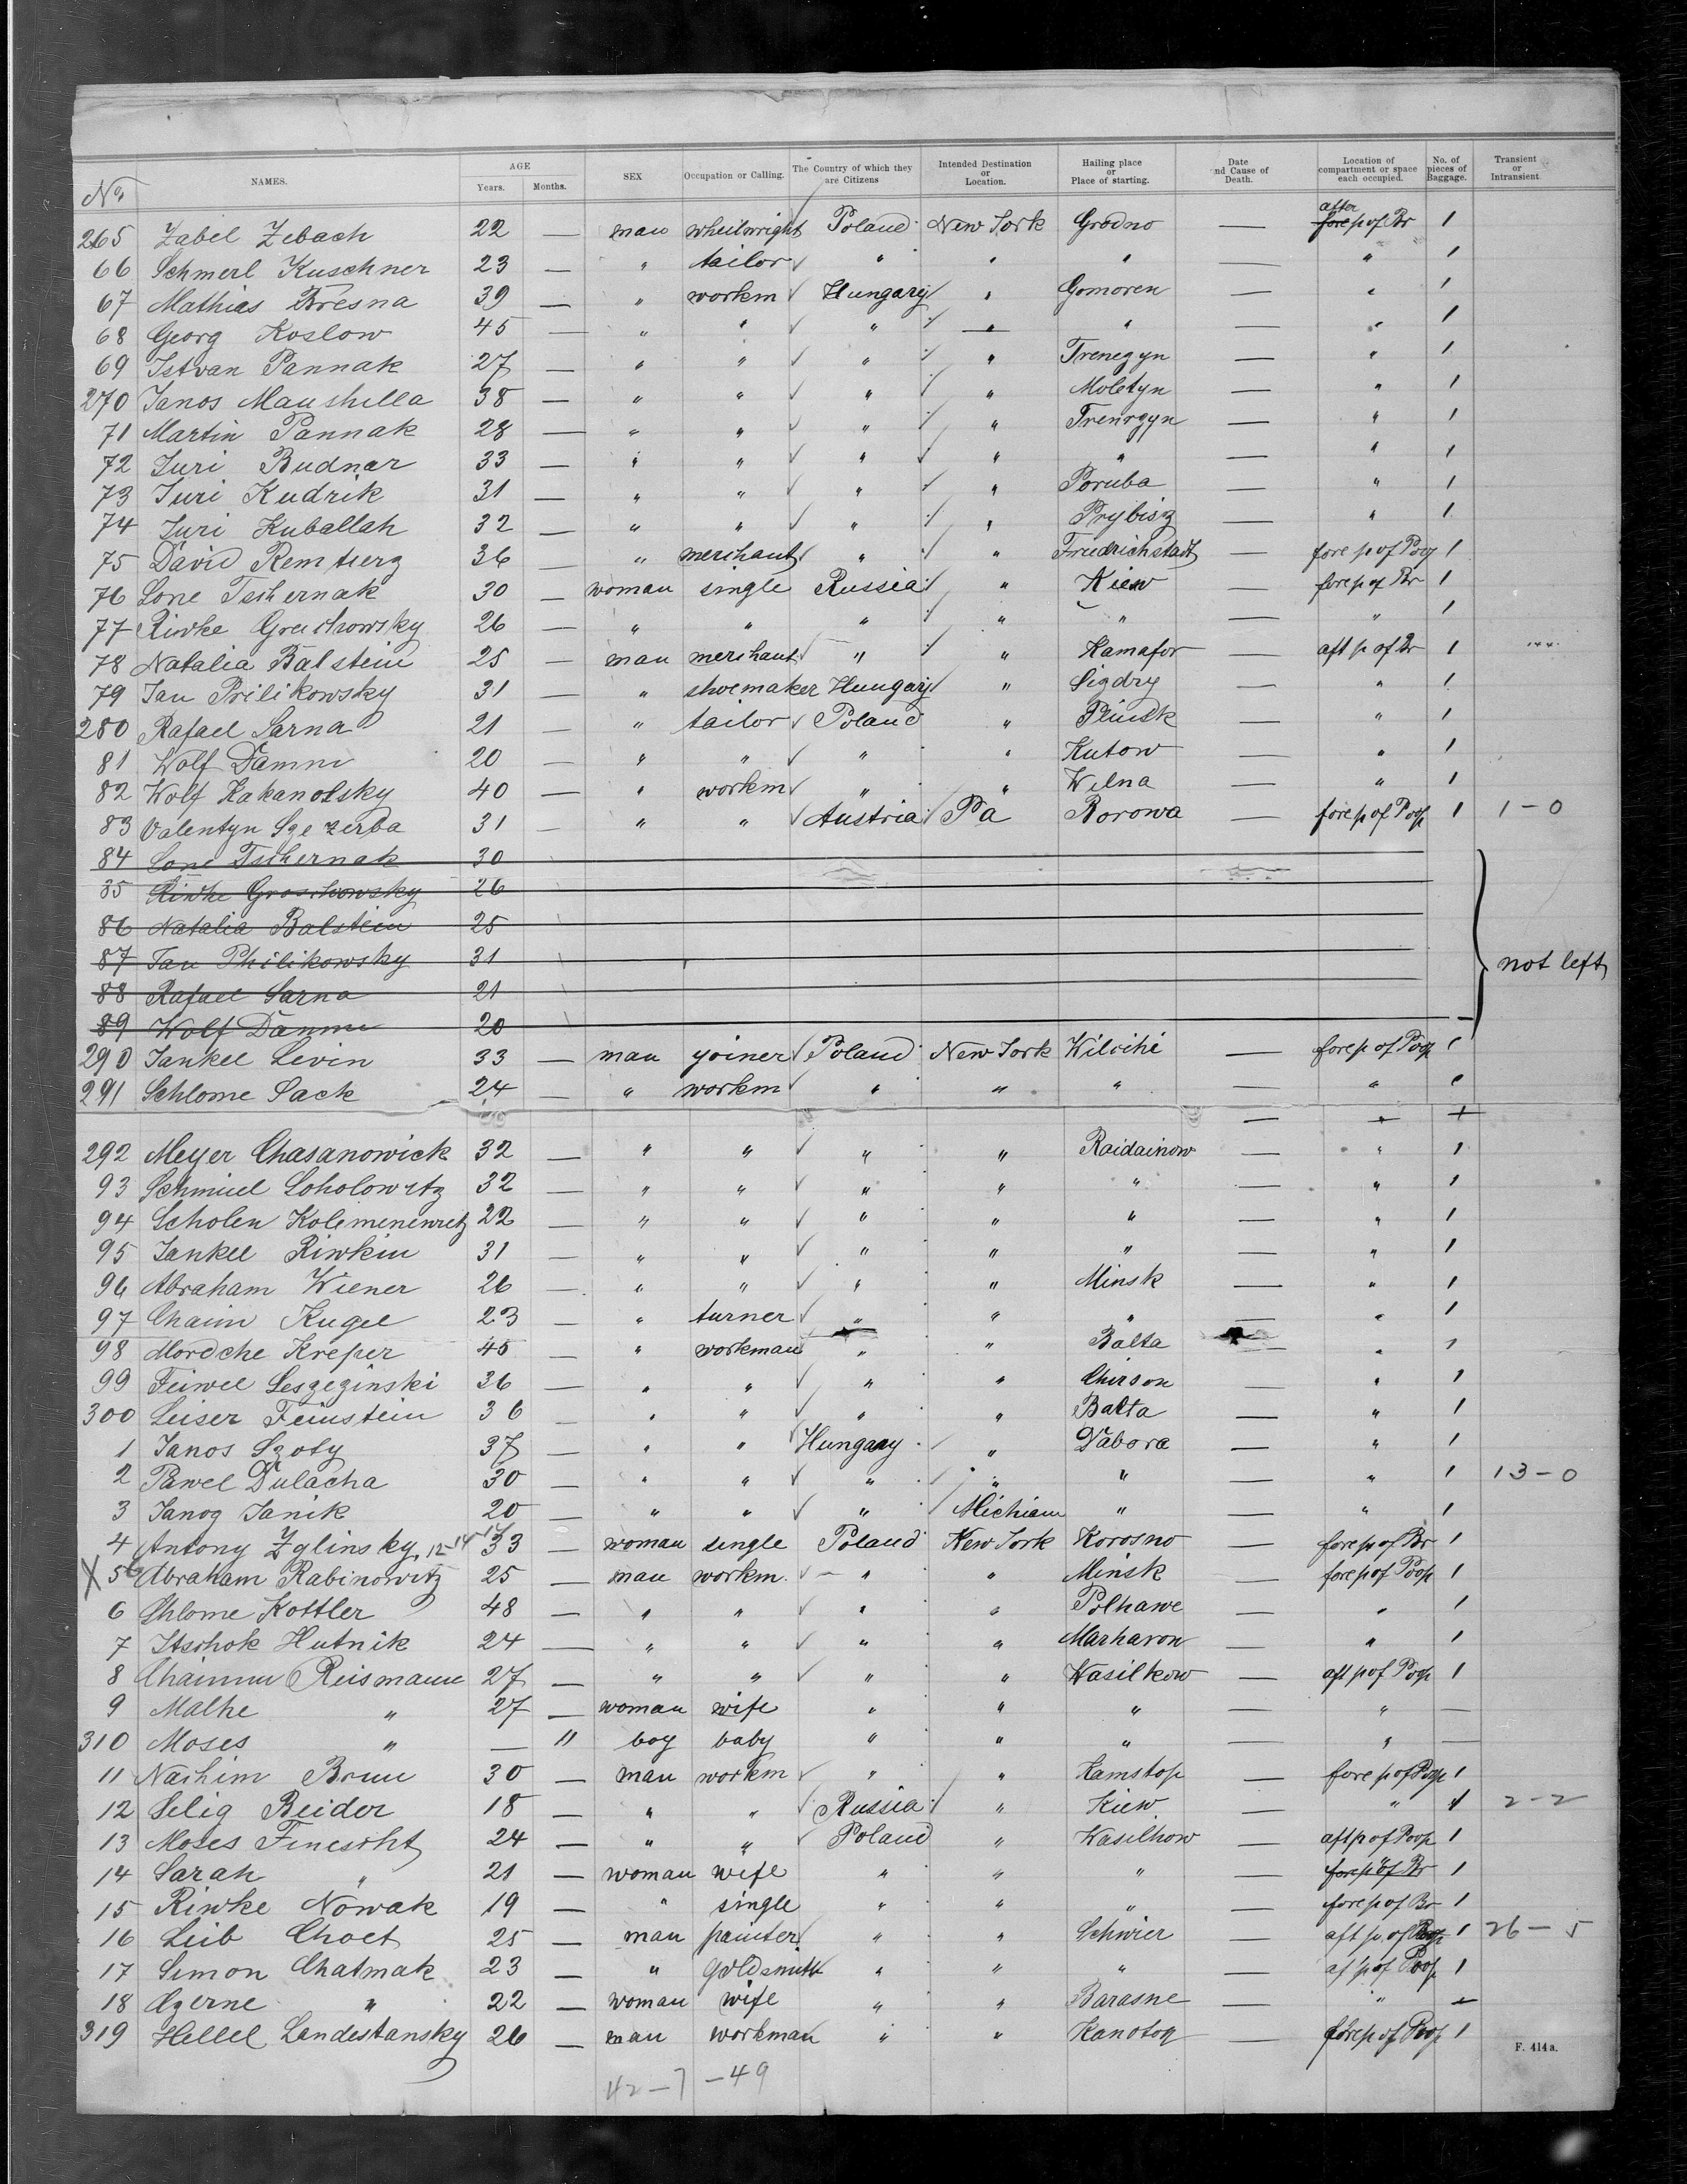 No. NAMES. AGE Years. Months. SEX Occupation or Calling. The Country of which they are Citizens Intended Destination or Location. Hailing place or Place of starting. Date and Cause of Death. Location of compartment or space each occupied. No. of pieces of Baggage. Transient or Intransient.
265 Zabel Zebach 22 — man wheilwright Poland New York Grodno — after fore p of Br 1
66 Schmerl Kuschner 23 — " tailor " " " — " 1
67 Mathias Bresna 39 — " workm Hungary " Gomoren — " 1
68 Georg Koslow 45 — " " " " " — " 1
69 Istvan Pannak 27 — " " " " Trenegyn — " 1
270 Janos Maushella 38 — " " " " Moletyn — " 1
71 Martin Pannak 28 — " " " " Trenrgyn — " 1
72 Juri Budnar 33 — " " " " " — " 1
73 Juri Kudrik 31 — " " " " Poruba — " 1
74 Juri Kuballah 32 — " " " " Prybisz — " 1
75 David Remberg 36 — " merchant " " Friedrichstadt — fore p of Poop 1
76 Lone Tschernak 30 — woman single Russia " Kiew — fore p of Br 1
77 Riwke Greichowsky 26 — " " " " " — " 1
78 Natalia Balstein 25 — man merchant " " Kamafor — aft p of Br 1
79 Jan Prilikowsky 31 — " shoemaker Hungary " Sigdry — " 1
280 Rafael Sarna 21 — " tailor Poland " Plinsk — " 1
81 Wolf Damm 20 — " " " " Kutow — " 1
82 Wolf Kakanolsky 40 — " workm " " Wilna — " 1
83 Valentyn Szezerba 31 — " " Austria Pa Rorowa — fore p of Poop 1 1 — 0
84 Lone Tschernak 30
85 Riwke Groschowsky 26
86 Natalia Balstein 25
87 Jan Philikowsky 31 not left
88 Rafael Sarna 21
89 Wolf Damm 20
290 Jankel Levin 33 — man joiner Poland New York Kilcihi — fore p of Poop 1
291 Schlome Sack 24 — " workm " " " — " 1
292 Meyer Chasanowick 32 — " " " " Raidainow — " 1
93 Schmiel Soholowitz 32 — " " " " " — " 1
94 Scholen Kolimenewitz 22 — " " " " " — " 1
95 Jankel Riwkin 31 — " " " " " — " 1
96 Abraham Wiener 26 — " " " " Minsk — " 1
97 Chaim Kugel 23 — " turner " " " — " 1
98 Mordche Kreper 45 — " workman " " Balta — " 1
99 Feiwel Leszezinski 36 — " " " " Chirson — " 1
300 Leiser Feinstein 36 — " " " " Balta — " 1
1 Janos Szoty 37 — " " Hungary " Dabora — " 1
2 Pawel Dulacha 30 — " " " " " — " 1 13 — 0
3 Janog Janik 20 — " " " Michiam " — " 1
4 Antony Zglinsky 33 — woman single Poland New York Korosno — fore p of Br 1
X 5 Abraham Rabinowitz 25 — man workm " " Minsk — fore p of Poop 1
6 Chlome Kottler 48 — " " " " Polhawe — " 1
7 Itschok Hutnik 24 — " " " " Marharon — " 1
8 Chaimm Reismann 27 — " " " " Wasilkow — aft p of Poop 1
9 Malhe " 27 — woman wife " " " — " —
310 Moses " — 11 boy baby " " " — " —
11 Nachim Brun 30 — man workm " " Kamstop — fore p of Poop 1
12 Selig Beider 18 — " " Russia " Kiew — " 1 2 - 2
13 Moses Finescht 24 — " " Poland " Wasilhow — aft p of Poop 1
14 Sarah " 21 — woman wife " " " — fore p of Br 1
15 Riwke Nowak 19 — " single " " " — fore p of Br 1
16 Leib Choet 25 — man painter " " Schwier — aft p. of Poop 1 26 — 5
17 Simon Chatmak 23 — " goldsmith " " " — af p of Poop 1
18 Czerne " 22 — woman wife " " Barasne — " —
319 Hillel Landestansky 26 — man workman " " Kanotoq — fore p of Poop 1
F. 414 a.
42 — 7 — 49